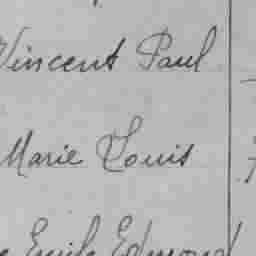 Vincent Paul
Marie Louis
Emile Edmond